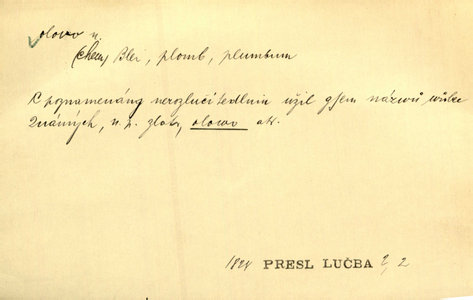 olovo n.
(chem) Blei, plomb, plumbum
K poznamenáný nerozlučitedlnin užil gsem názwů wůbec
známých, n. p. zlato, olowo atd.
1828 PRESL LUČBA 2, 2